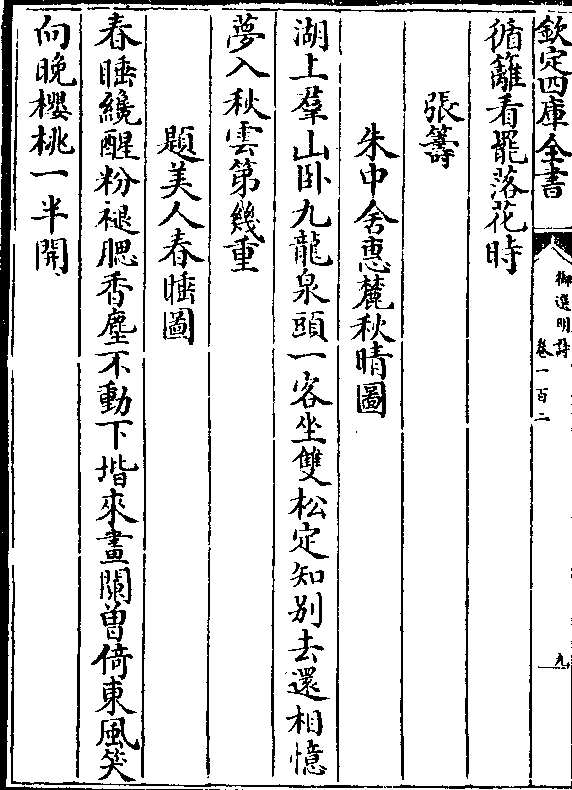 欽定四庫全書
御選明詩
卷一百二
九
循籬看罷落花時
張籌
朱中舍惠麓秋晴圖
湖上羣山卧九龍泉頭一客坐雙松定知别去還相憶
夢入秋雲第幾重
題美人春睡圖
春睡纔醒粉褪腮香塵不動下堦來畫闌曽倚東風笑
向晚櫻桃一半開